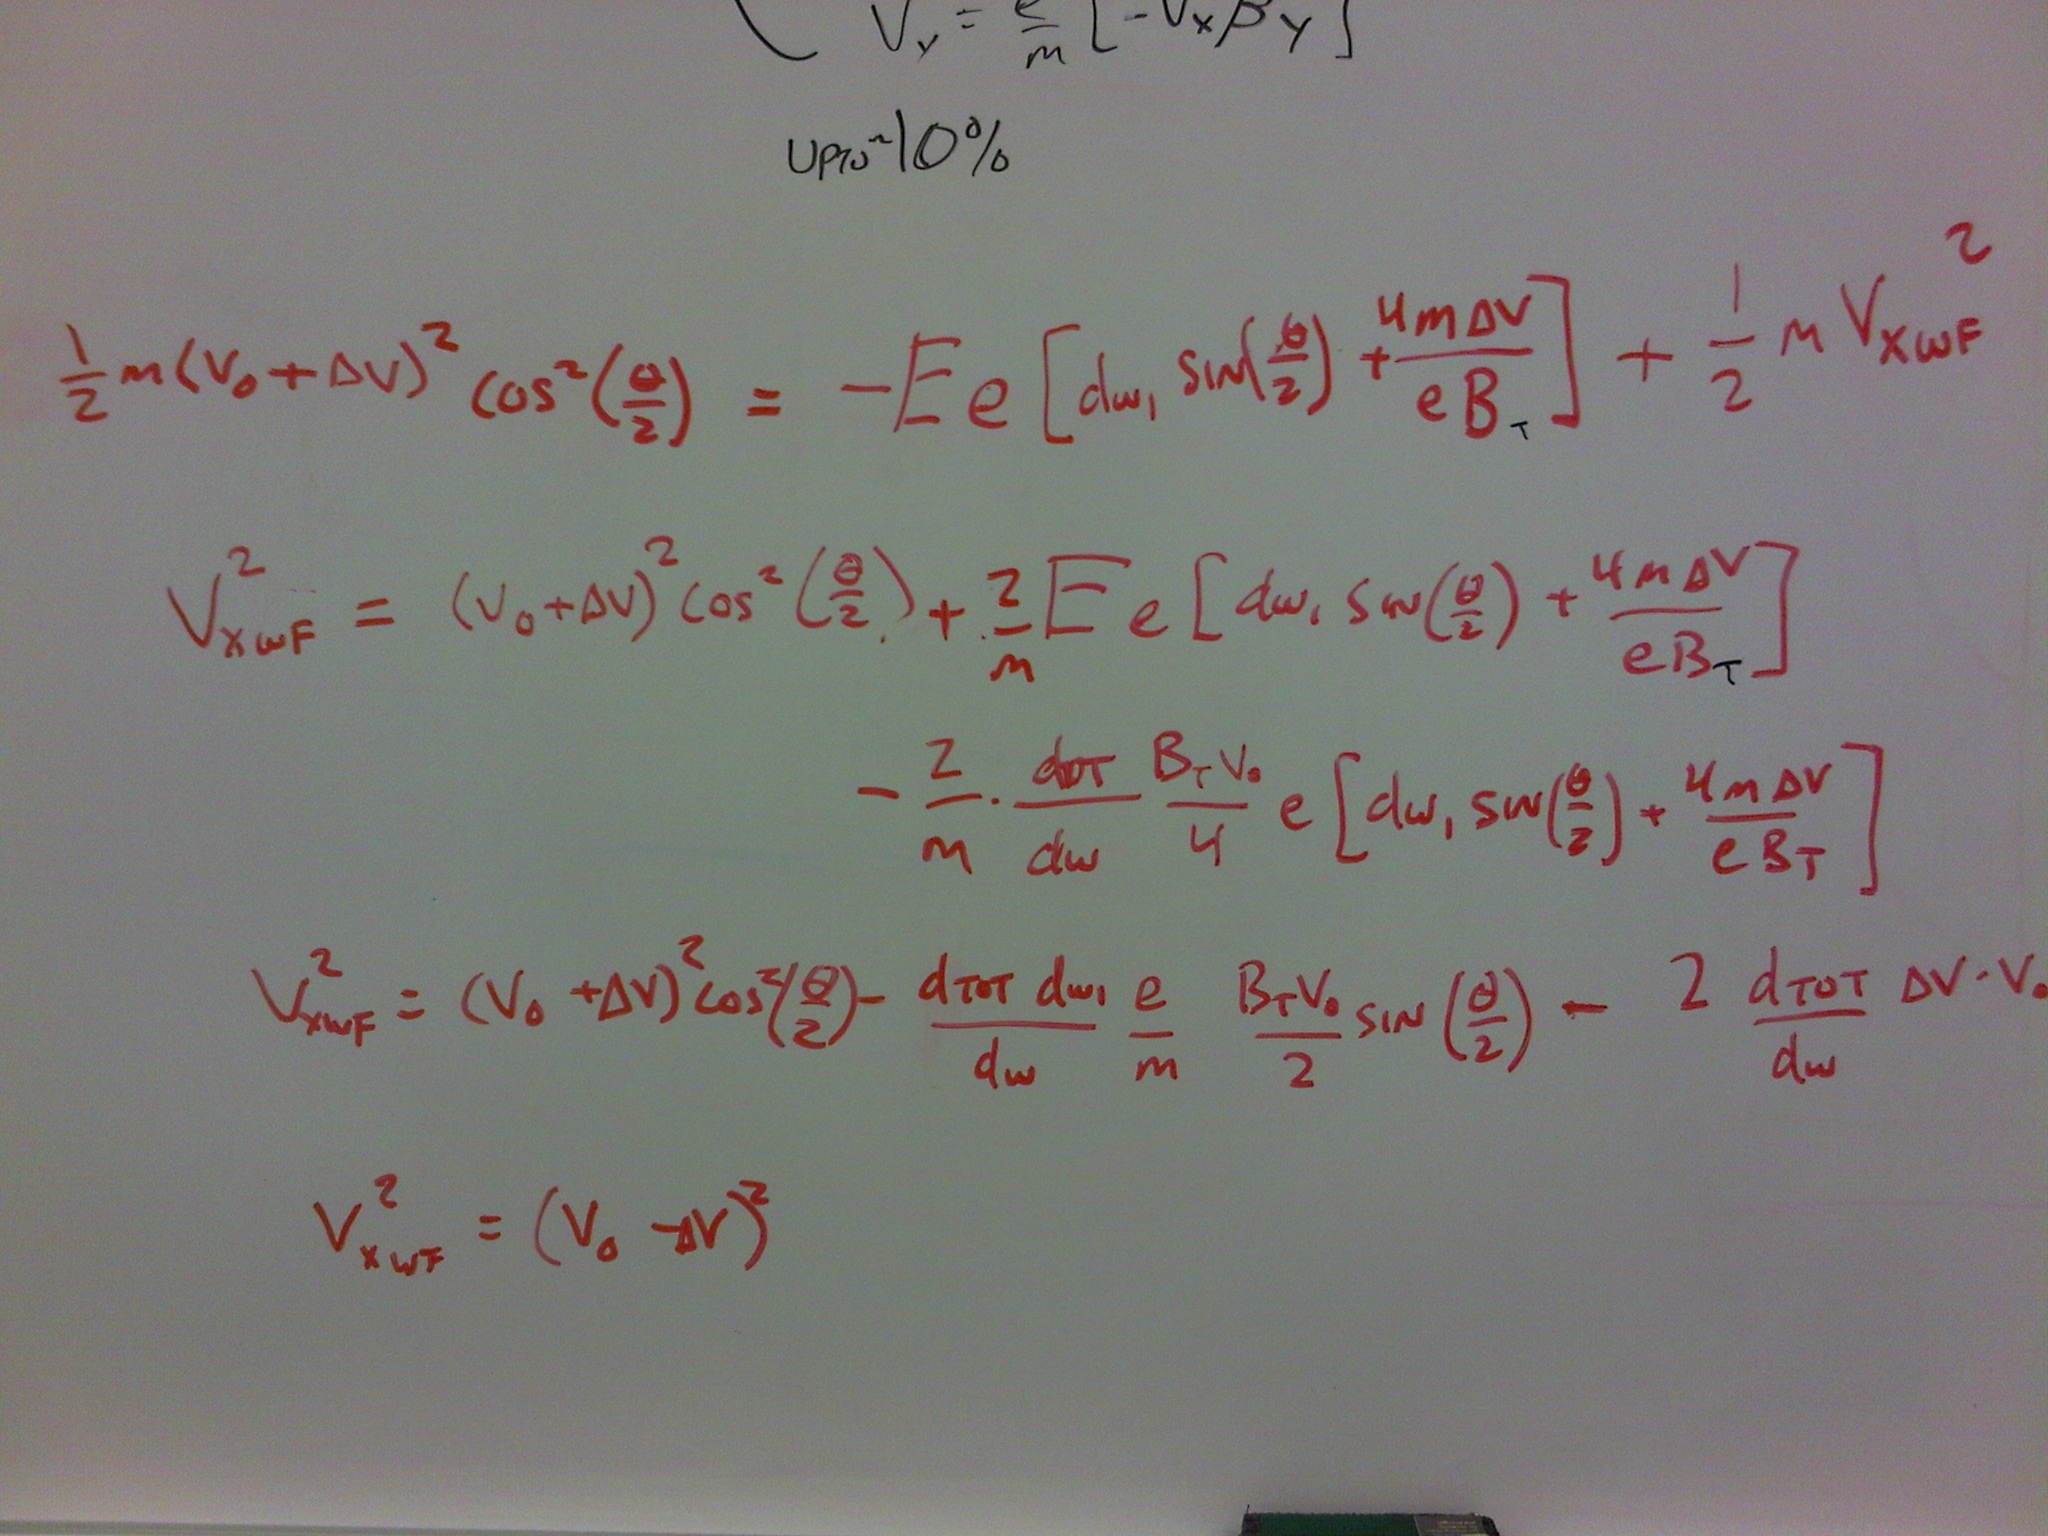 V_y = e/m [-V_x β y]
UPTO ~10%
1/2 m(V_0 + ΔV)^2 cos^2(θ/2) = -Ee[d_w1 sin(θ/2) + 4mΔV/eB_T] + 1/2 m V_XWF^2
V_XWF^2 = (V_0 + ΔV)^2 cos^2(θ/2) + 2/m Ee[d_w1 sin(θ/2) + 4mΔV/eB_T]
- 2/m · d_TOT/d_w B_T V_0/4 e[d_w1 sin(θ/2) + 4mΔV/eB_T]
V_XWF^2 = (V_0 + ΔV)^2 cos^2(θ/2) - d_TOT d_w1/d_w e/m B_T V_0/2 SIN(θ/2) - 2 d_TOT/d_w ΔV·V_0
V_XWF^2 = (V_0 - ΔV)^2